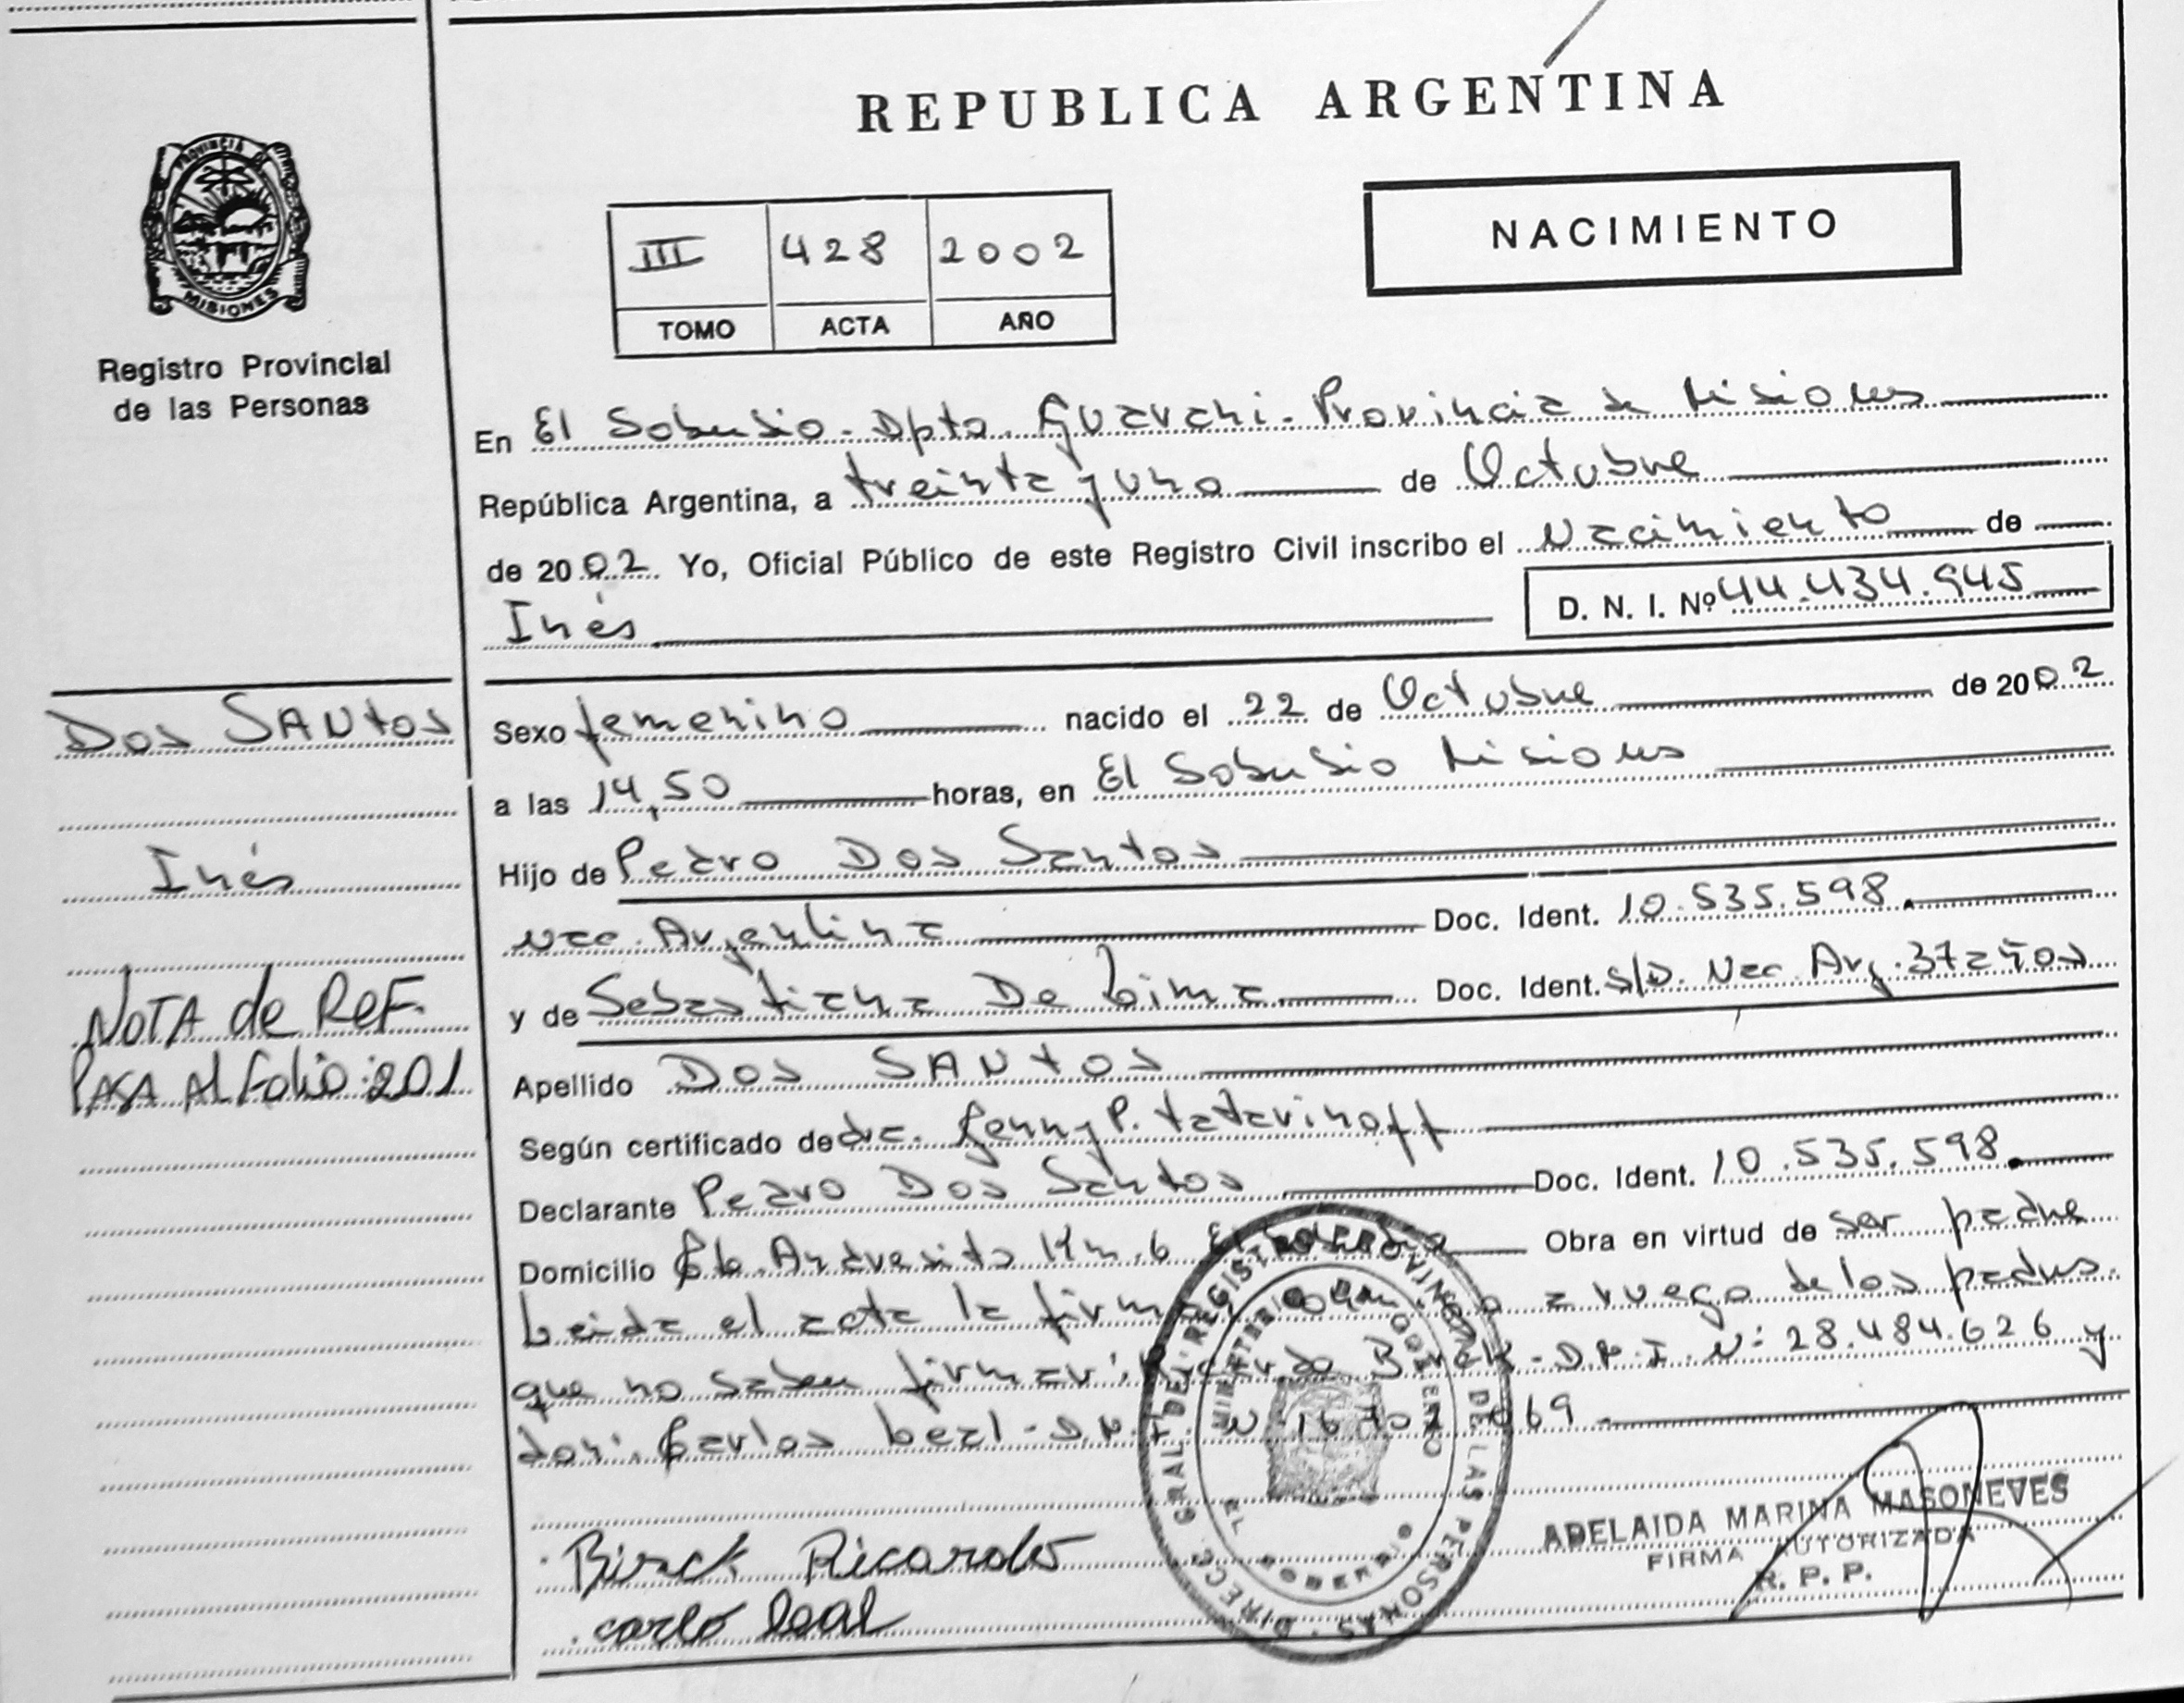 REPUBLICA ARGENTINA
PROVINCIA DE
MISIONES
Registro Provincial
de las Personas
III 428 2002
TOMO ACTA AÑO
NACIMIENTO
En El Soberbio - Dpto. Guarani - Provincia de Misiones
República Argentina, a treinta y uno de Octubre
de 2002 Yo, Oficial Público de este Registro Civil inscribo el Nacimiento de
Inés D. N. I. Nº 44.434.945
Dos SANtos
Inés
NOTA de ReF.
PASA Al folio: 201
Sexo femenino nacido el 22 de Octubre de 2002
a las 14,50 horas, en El Soberbio Misiones
Hijo de Pedro Dos Santos
Nac. Argentina Doc. Ident. 10.535.598.
y de Sebastiana De Lima Doc. Ident. S/D. Nac. Arg. 37 años
Apellido Dos SANtos
Según certificado de dra. Jenny P. tatarinoff
Declarante Pedro Dos Santos Doc. Ident. 10.535.598.
Domicilio Cb. Andresito Km. 6 El Soberbio Obra en virtud de ser padre
Leida el acta la firman a ruego de los padres
que no saben firmar: Ricardo Birck - D.N.I. Nº 28.484.626 y
don: Carlos Leal - D.N.I. Nº
Birck Ricardo
carlo leal
DIRECC. GRAL. DEL REGISTRO PROVINCIAL DE LAS PERSONAS
MINISTERIO DE GOBIERNO
ADELAIDA MARINA MASONEVES
FIRMA AUTORIZADA
R. P. P.